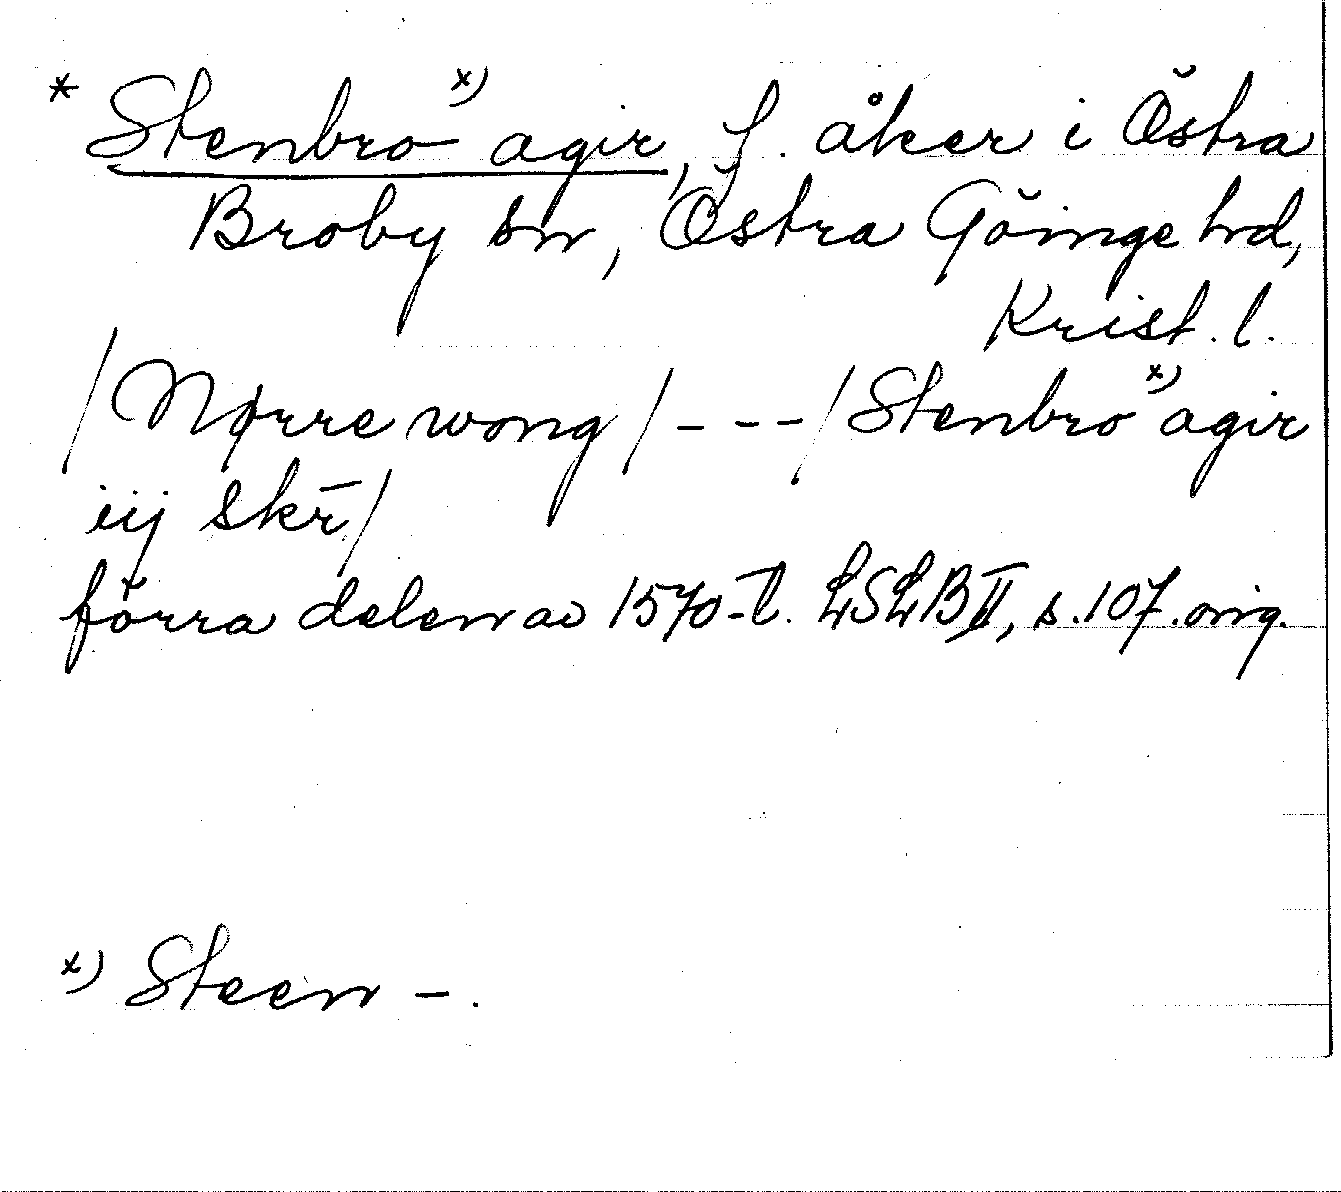 * Stenbro x) agir, f. åker i Östra
Broby sn, Östra Göinge hd,
Krist. l.
/Nørre wong/ - - - /Stenbro x) agir
iij skr̄/
förra delen av 1570-t. LSLB II, s. 107. orig.
x) Steen -.